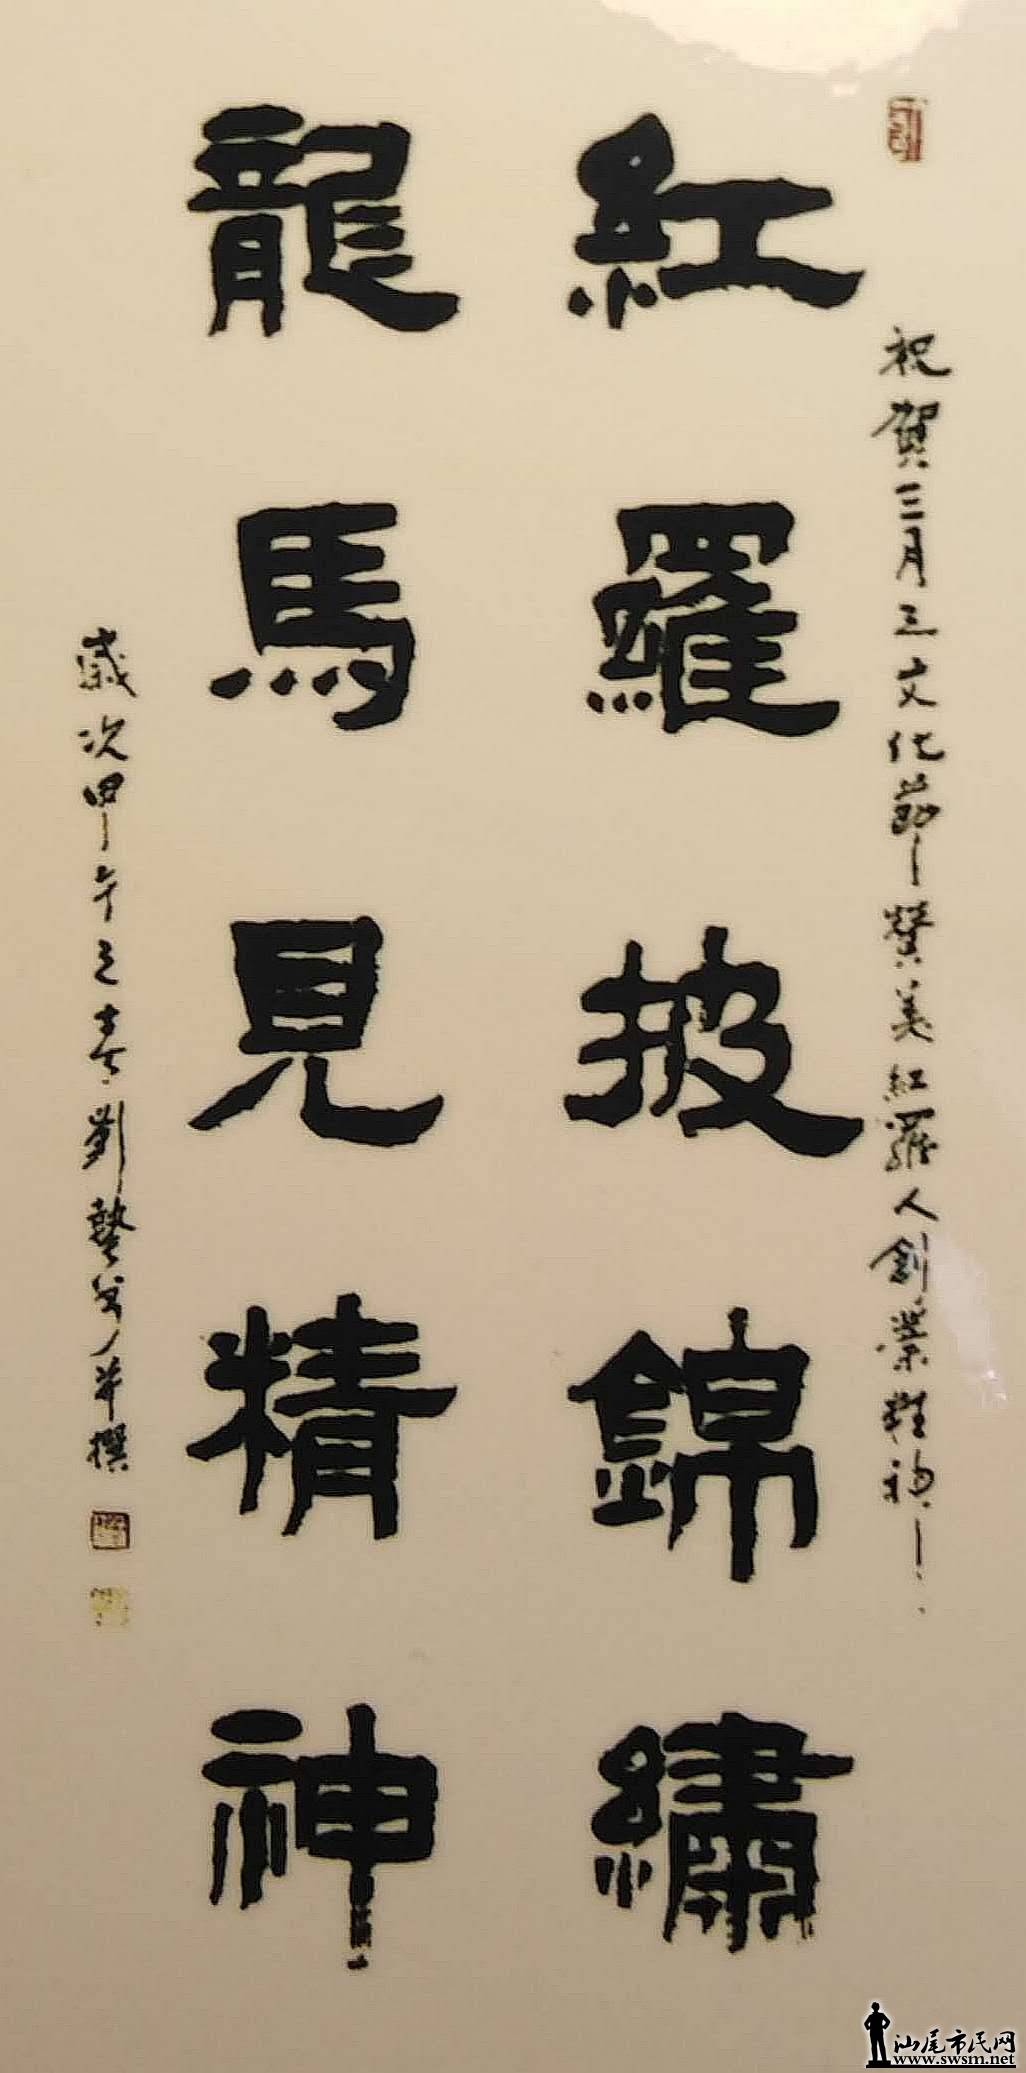 祝賀三月三文化節贊美紅羅人創業精神
紅羅披錦繡
龍馬見精神
歲次甲午之春劉藝爻并撰
汕尾市民网
www.swsm.net